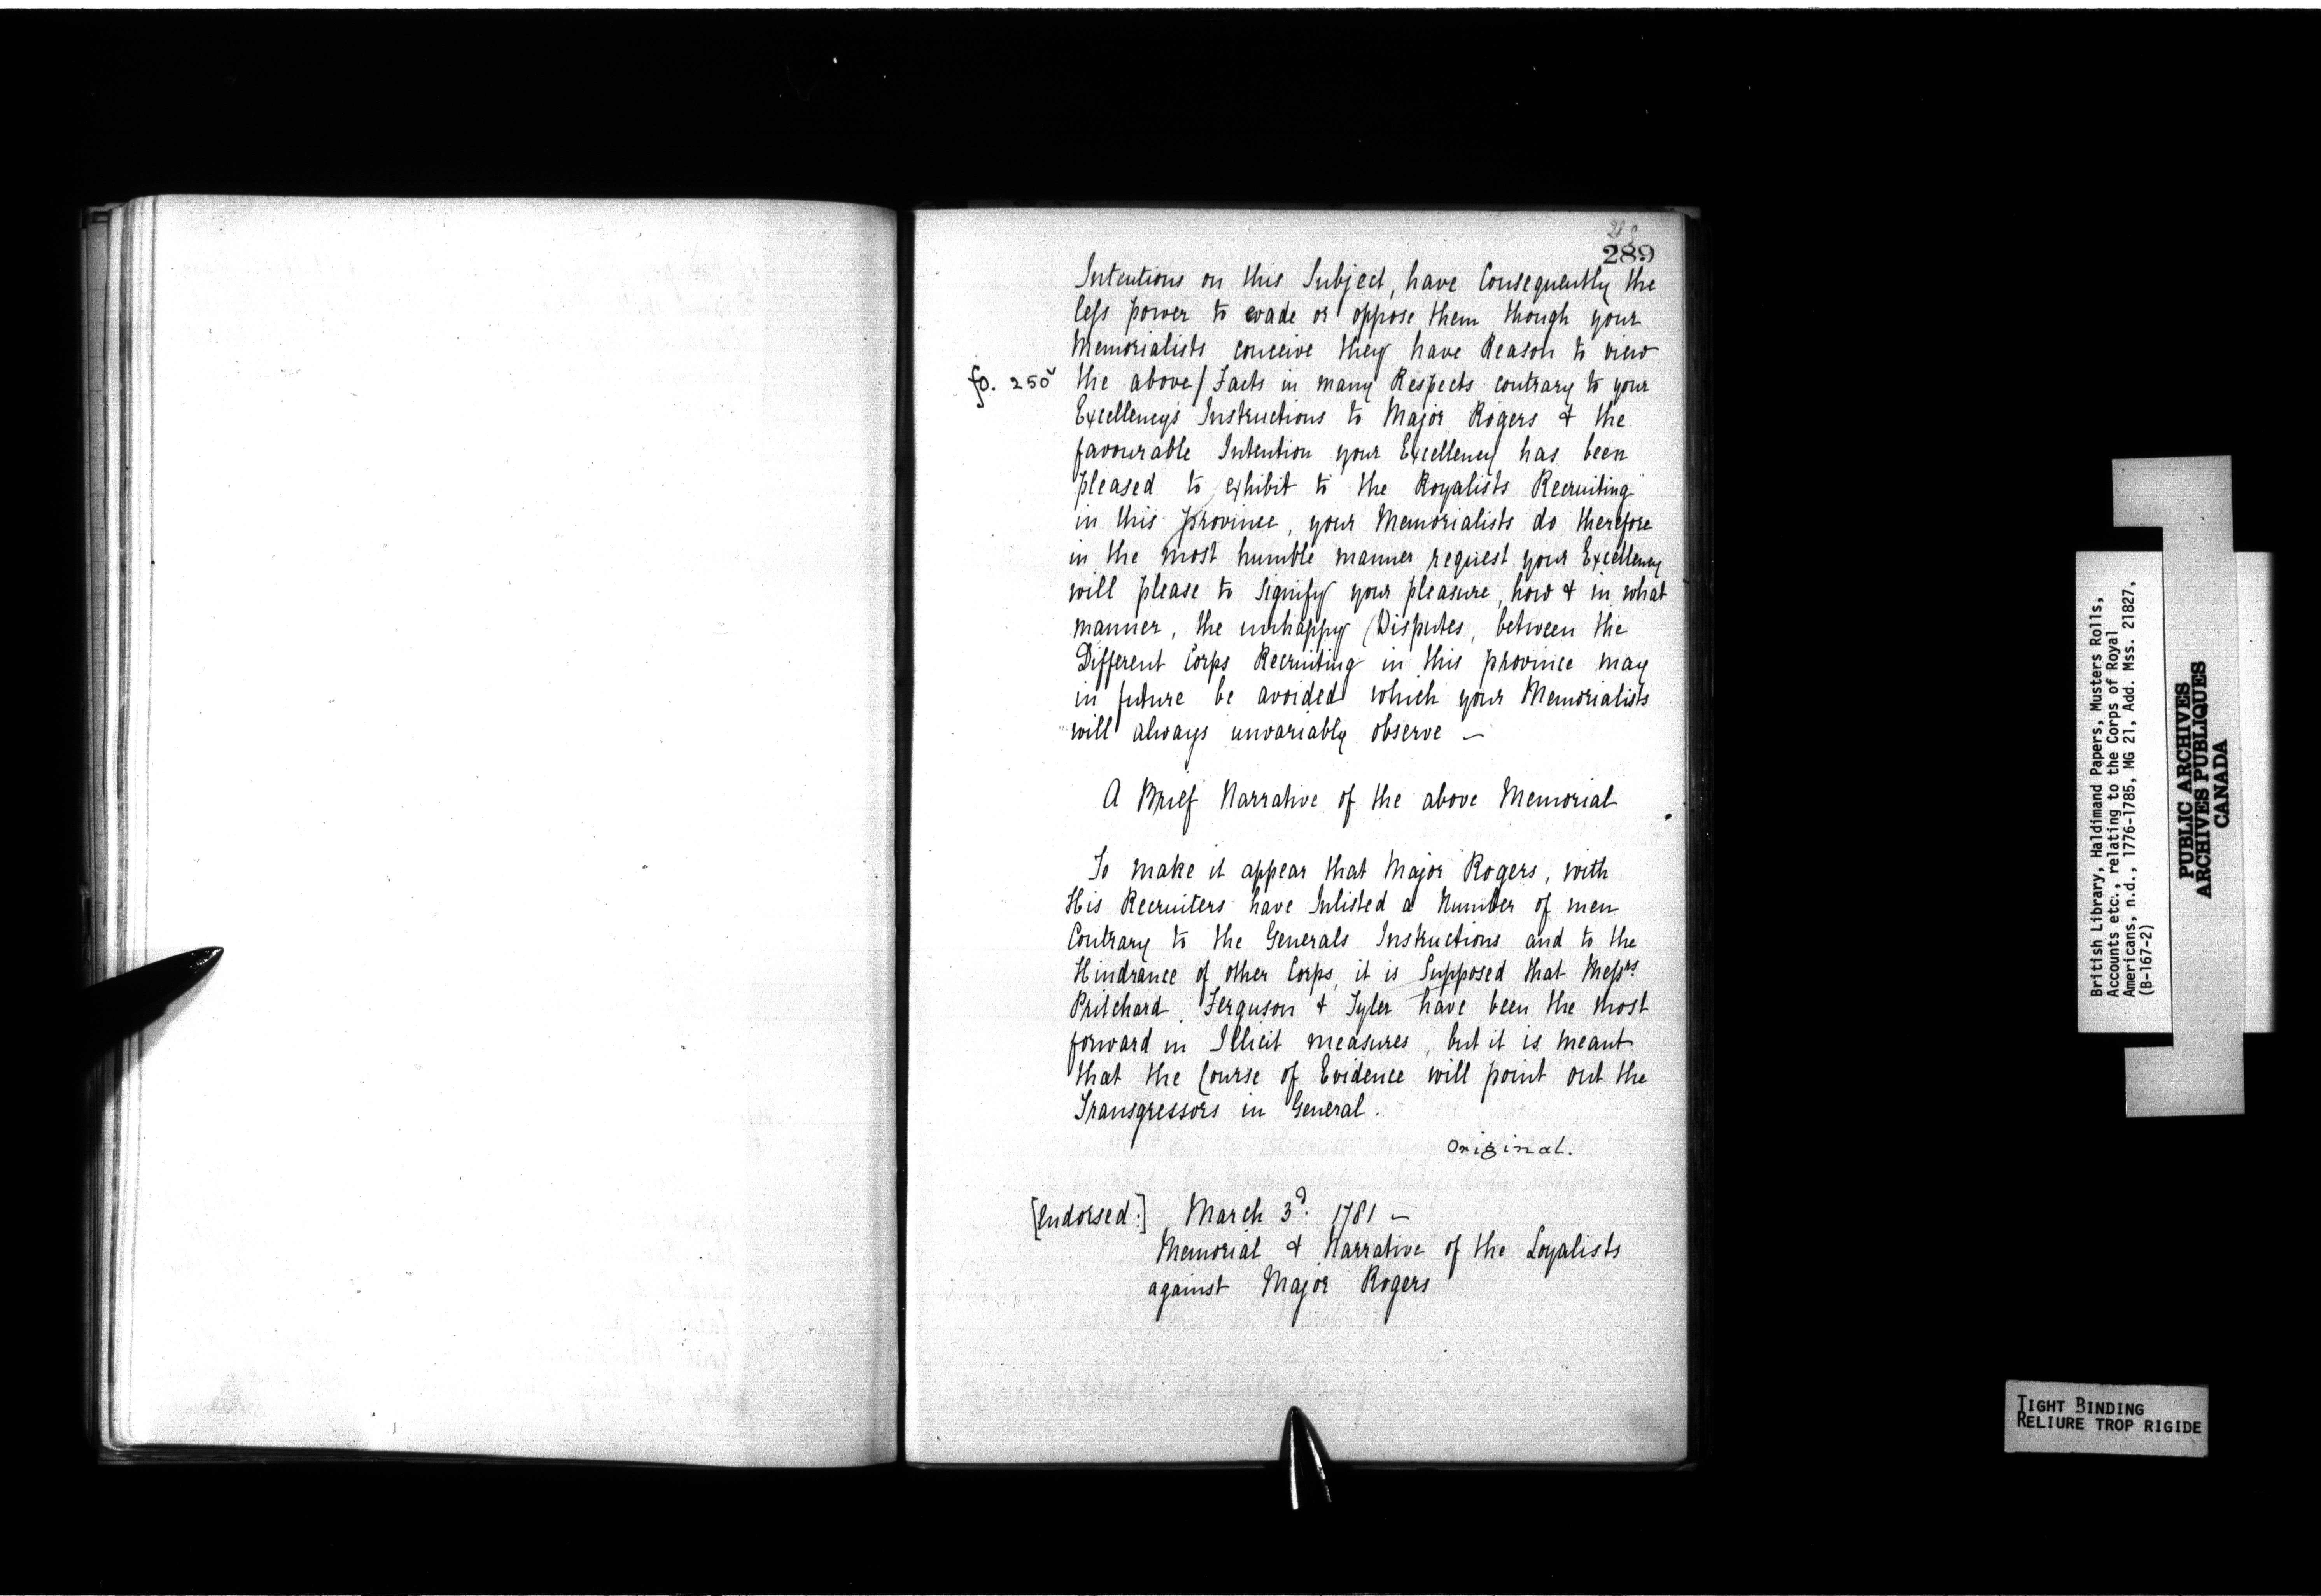 289
289
Intentions on this Subject, have Consequently the
less power to evade or oppose them though your
Memorialists conceive they have Reason to view
fo. 250v the above / Facts in many Respects contrary to your
Excellencys Instructions to Major Rogers & the
favourable Intention your Excellency has been
pleased to exhibit to the Royalists Recruiting
in this province, your Memorialists do therefore
in the most humble manner request your Excellency
will please to Signify your pleasure, how & in what
manner, the unhappy Disputes, between the
Different Corps Recruiting in this province may
in future be avoided which your Memorialists
will always unvariably observe —
A Brief Narrative of the above Memorial
To make it appear that Major Rogers, with
His Recruiters have Inlisted a Number of men
Contrary to the Generals Instructions and to the
Hindrance of other Corps, it is Supposed that Messrs
Pritchard, Ferguson & Tyler have been the most
forward in Illicit measures, but it is meant
that the Course of Evidence will point out the
Transgressors in General.
Original.
[Endorsed:] March 3d. 1781 —
Memorial & Narrative of the Loyalists
against Major Rogers
British Library, Haldimand Papers, Musters Rolls,
Accounts etc., relating to the Corps of Royal
Americans, n.d., 1776-1785, MG 21, Add. Mss. 21827,
(B-167-2)
PUBLIC ARCHIVES
ARCHIVES PUBLIQUES
CANADA
TIGHT BINDING
RELIURE TROP RIGIDE